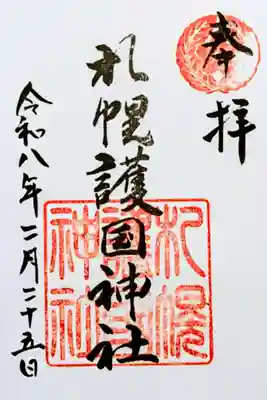 奉拝
札幌護国神社
令和八年二月二十五日
札幌
護国
神社